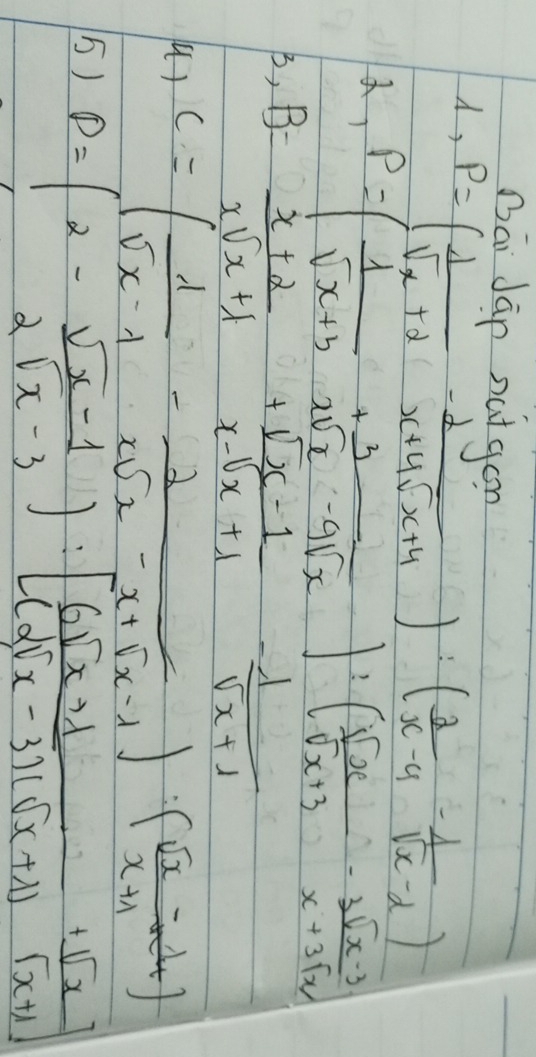 Bài tập rút gọn
1, P = (1/(√x+2) - 2/(x+4√x+4)) : (2/(x-4) - 1/(√x-2))
2, P = (1/(√x+3) + 3/(x√x-9√x)) : (√x/(√x+3) - (3√x-3)/(x+3√x))
3, B = (x+2)/(x√x+1) + (√x-1)/(x-√x+1) - 1/(√x+1)
4, C = (1/(√x-1) - 2/(x√x-x+√x-1)) : (√x/(x+1) - 1)
5) P = (2 - (√x-1)/(2√x-3)) : [(6√x+1)/((2√x-3)(√x+1)) + √x/(√x+1)]